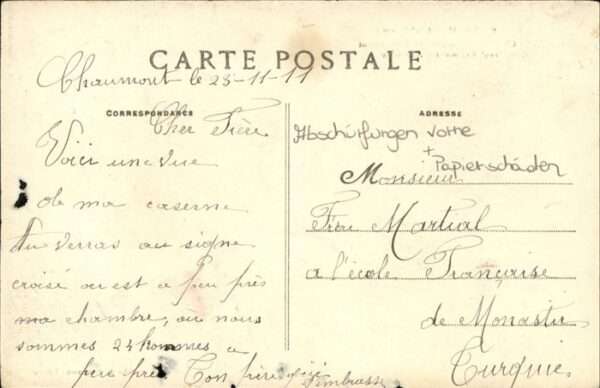 CARTE POSTALE
Chaumont le 25-11-11
CORRESPONDANCE
Cher Frère
Voici une vue
de ma caserne
Tu verras au signe
croisé où est a peu près
ma chambre, où nous
sommes 24 hommes a
près Ton frère
t'embrasse
ADRESSE
Abschürfungen vorne
+ Papierschäden
Monsieur
Frère Martial
a l'école Française
de Monastir
Turquie